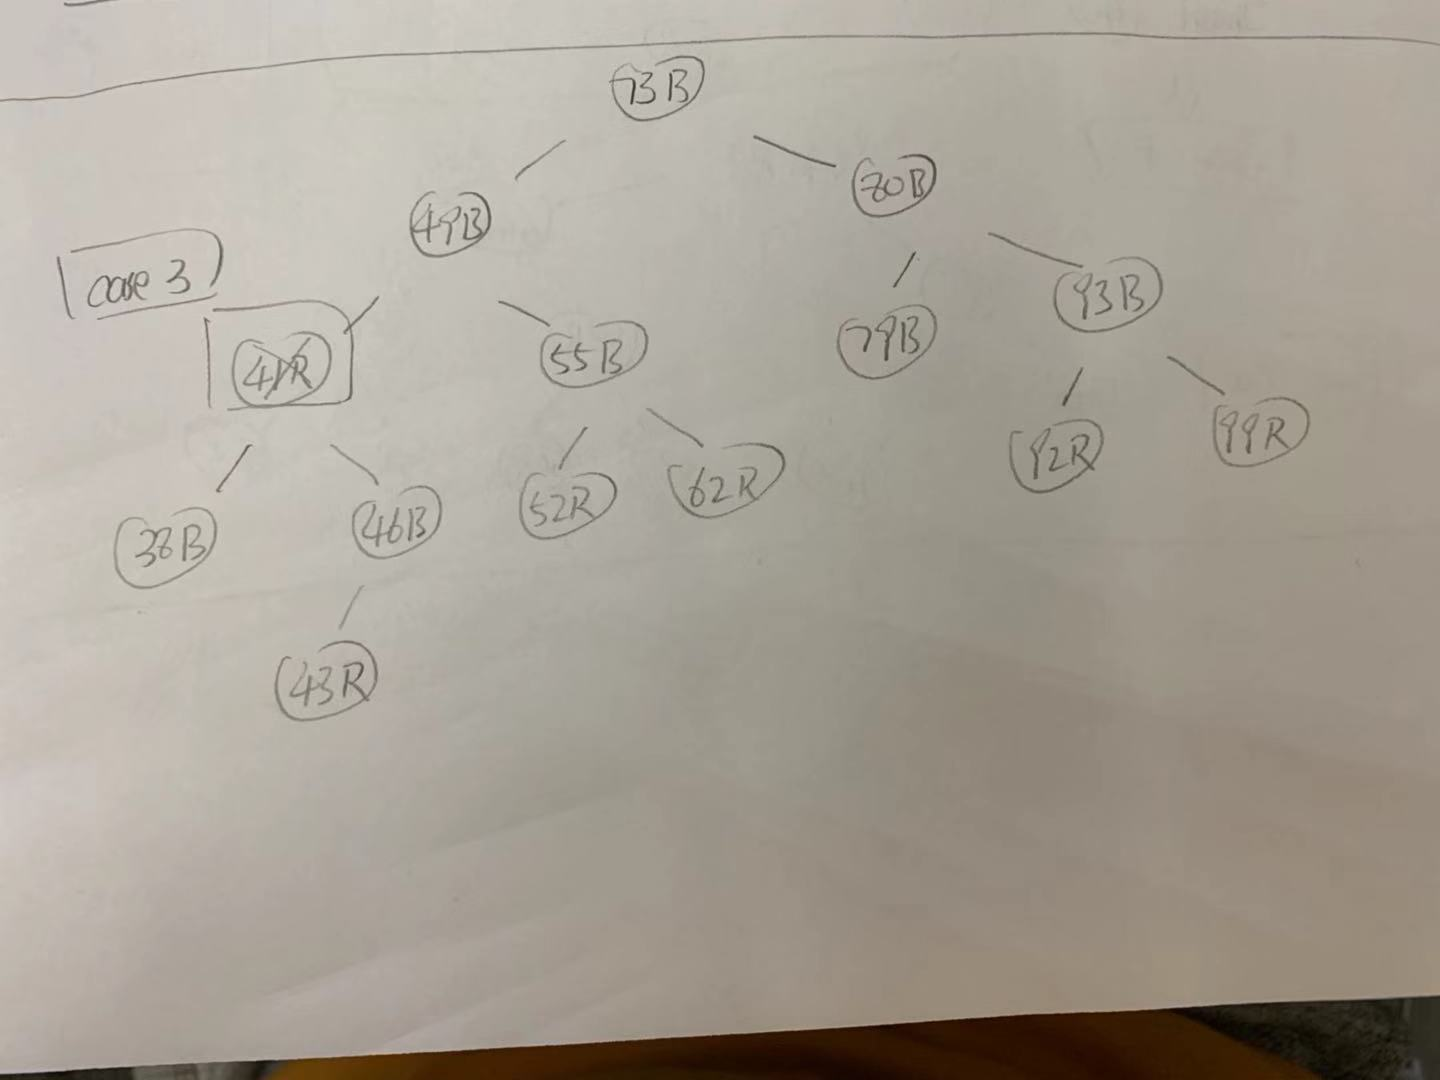 73B
49B 80B
case 3
41R 55B 79B 93B
38B 46B 52R 62R 92R 99R
43R